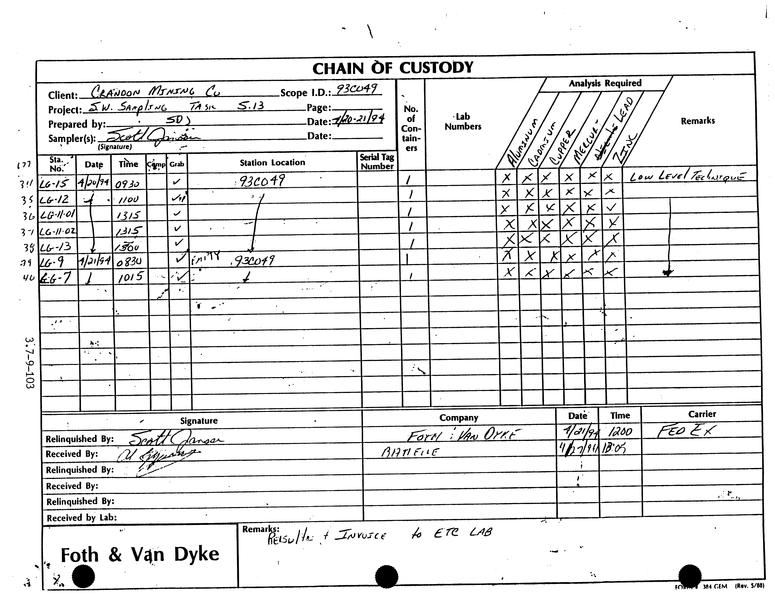 CHAIN OF CUSTODY
Client: CRANDON MINING CO Scope I.D.: 93C049
Project: S.W. SAMPLING TASK 5.13 Page:
Prepared by: SDJ Date: 4/20-21/94
Sampler(s): Scott Jansen Date:
(Signature)
No. of Containers
Lab Numbers
Analysis Required
ALUMINUM CADMIUM COPPER MERCURY LEAD ZINC
Remarks
Sta. No. Date Time Comp Grab Station Location Serial Tag Number
LG-15 4/20/94 0930 ✓ 93C049 1 X X X X X X LOW LEVEL TECHNIQUE
35 LG-12 1100 ✓ 1 X X X X X X
36 LG-11-01 1315 ✓ 1 X X X X X ✓
37 LG-11-02 1315 ✓ 1 X X X X X X
38 LG-13 1500 ✓ 1 X X X X X X
39 LG-9 4/21/94 0830 ✓ EMPTY 93C049 1 X X X X X X
40 LG-7 1015 ✓ 1 X X X X X X
3.7-9-103
Signature Company Date Time Carrier
Relinquished By: Scott Jansen FOTH & VAN DYKE 4/21/94 1200 FED EX
Received By: BATTELLE 4/27/94
Relinquished By:
Received By:
Relinquished By:
Received by Lab:
Foth & Van Dyke
Remarks: RESULTS + INVOICE to ETC LAB
384 GEM (Rev. 5/88)